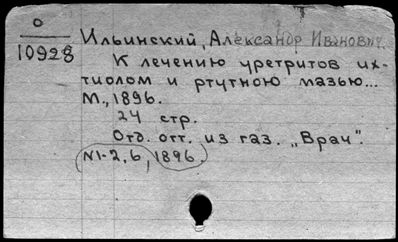 0
10928
Ильинский, Александр Иванович.
К лечению уретритов их-
тиолом и ртутною мазью...
М., 1896.
24 стр.
Отд. отт. из газ. „Врач".
N1-2, 6, 1896